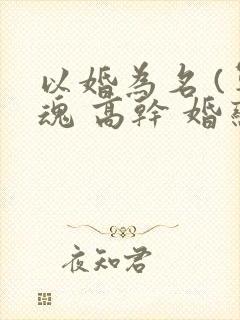 以婚為名(
魂 高幹 婚
夜知君